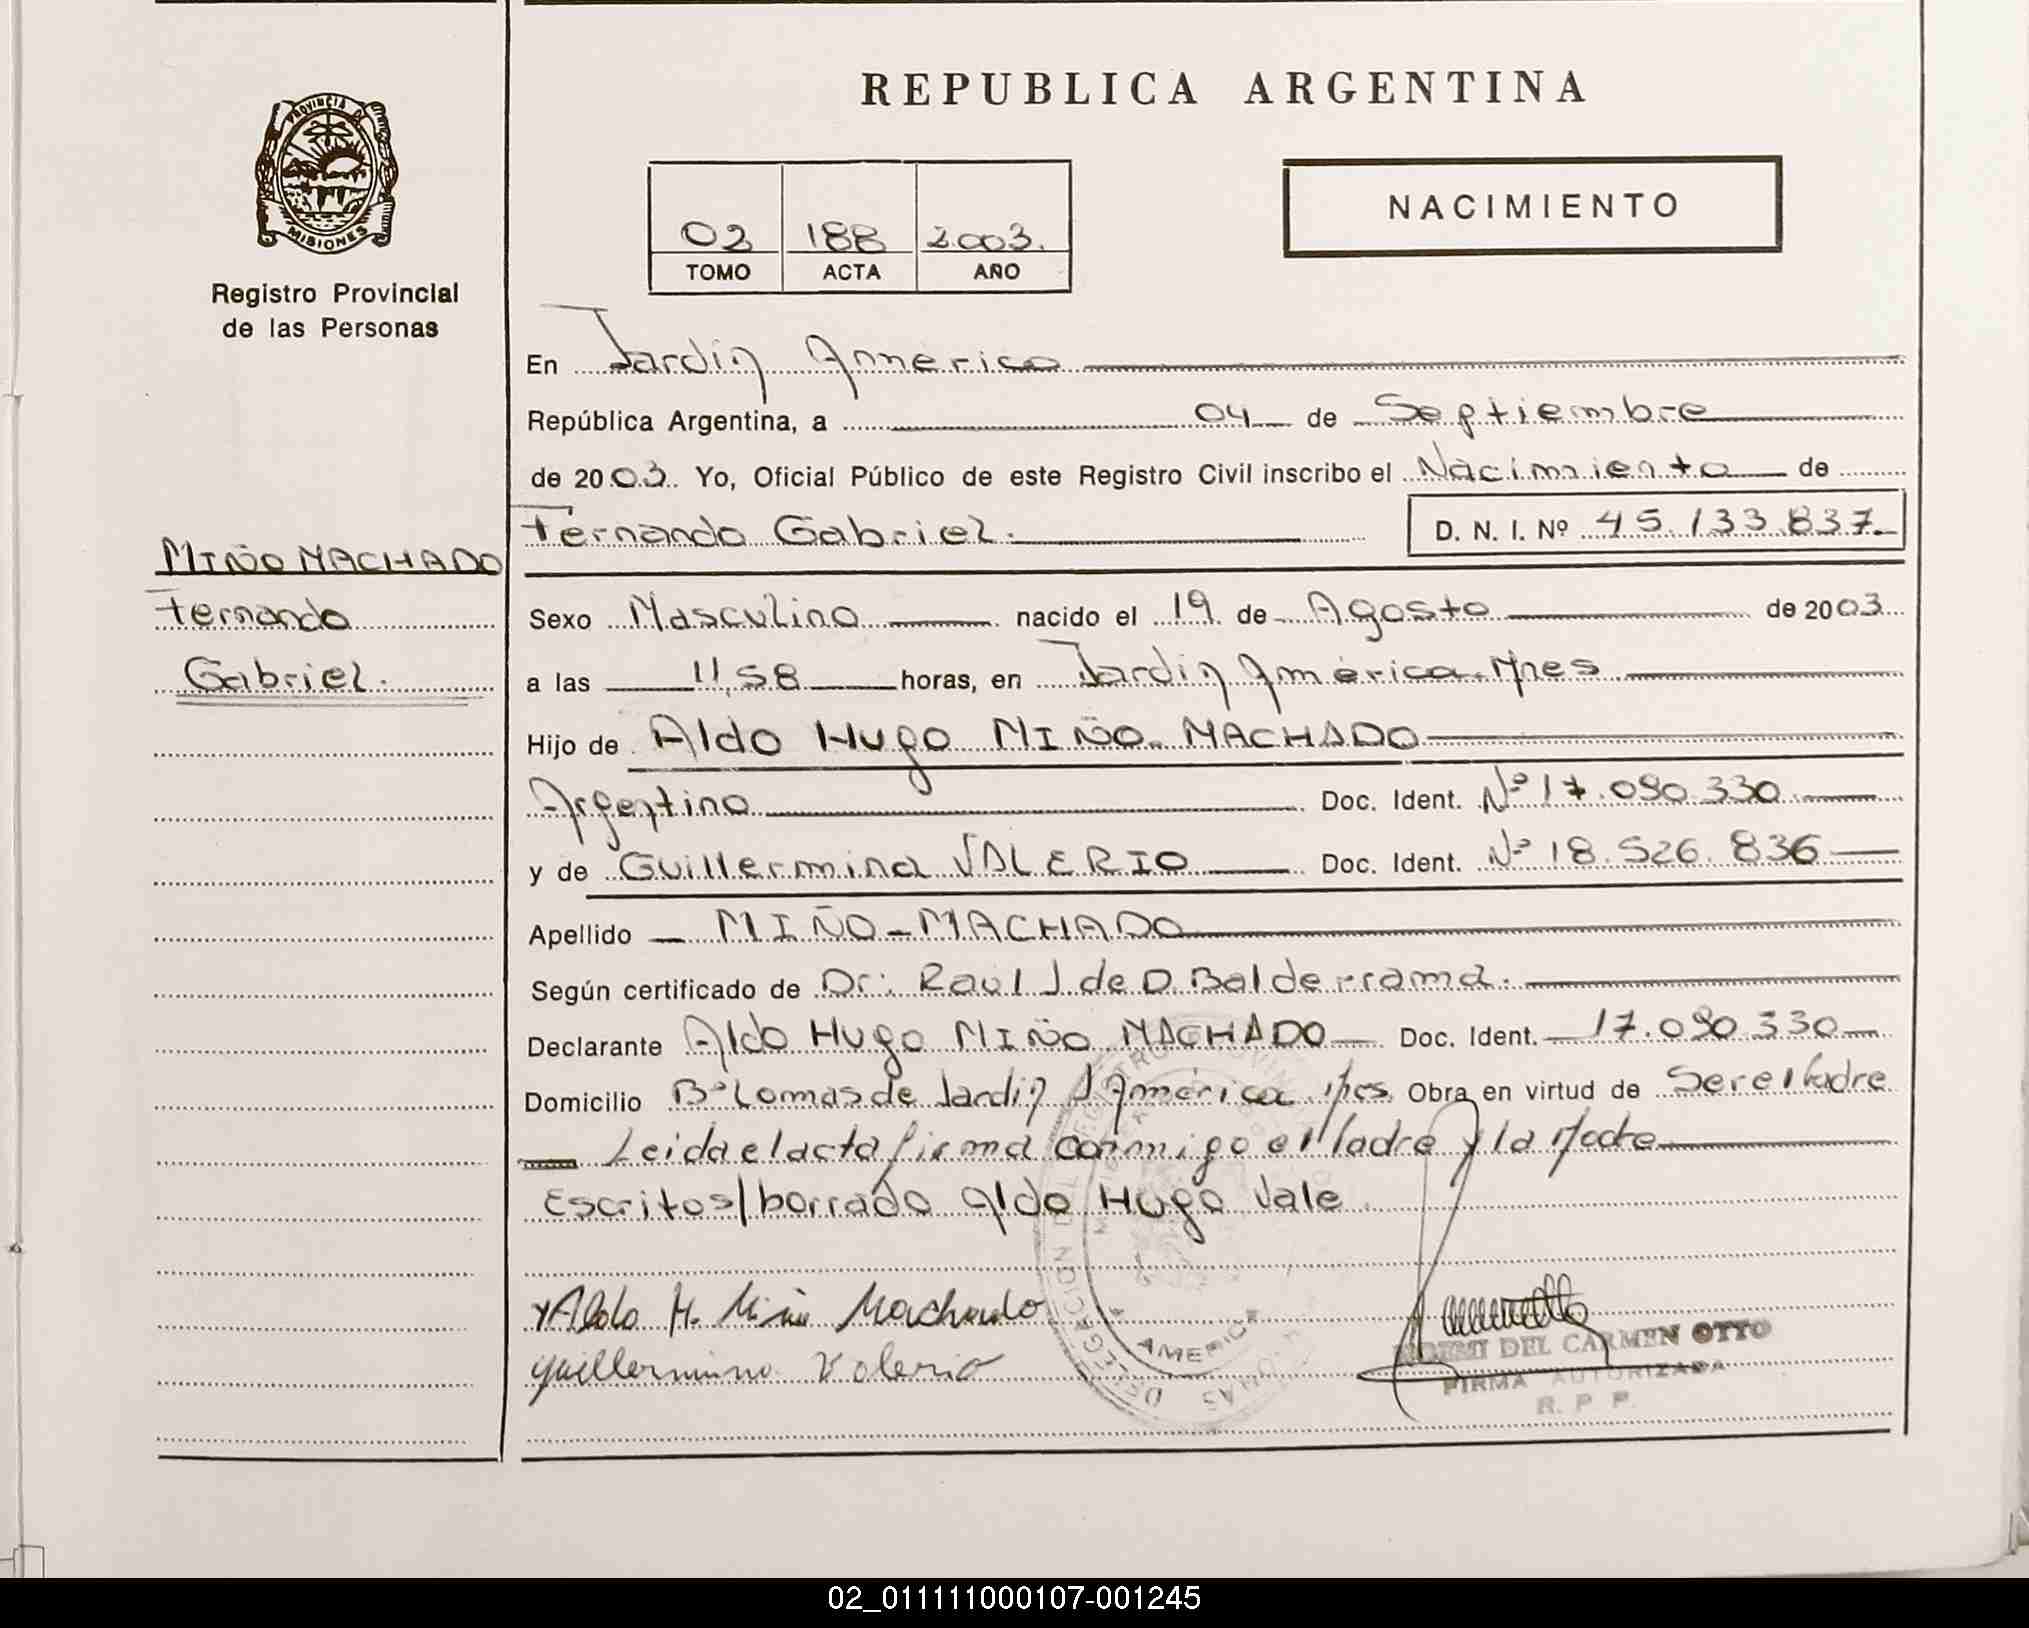 REPUBLICA ARGENTINA
PROVINCIA DE
MISIONES
Registro Provincial
de las Personas
NACIMIENTO
02 188 2003.
TOMO ACTA AÑO
En Jardín América
República Argentina, a 04 de Septiembre
de 2003. Yo, Oficial Público de este Registro Civil inscribo el Nacimiento de
Fernando Gabriel. D. N. I. Nº 45.133.837.
MIÑO MACHADO
Fernando
Gabriel.
Sexo Masculino nacido el 19 de Agosto de 2003
a las 11,58 horas, en Jardín América. Mnes
Hijo de Aldo Hugo MIÑO MACHADO
Argentino Doc. Ident. Nº 17.090.330
y de Guillermina VALERIO Doc. Ident. Nº 18.526.836
Apellido MIÑO-MACHADO
Según certificado de Dr: Raúl J de D. Balderrama.
Declarante Aldo Hugo MIÑO MACHADO Doc. Ident. 17.090.330
Domicilio Bº Lomas de Jardín J América Obra en virtud de Ser el Padre
Leida el acta firma conmigo el Padre y la Madre
Escritos/borrado Aldo Hugo Vale
Aldo H. Miño Machado
Guillermina Valerio
DEL CARMEN OTTO
FIRMA AUTORIZADA
R. P. P.
DELEGACION
AMERICA
02_011111000107-001245